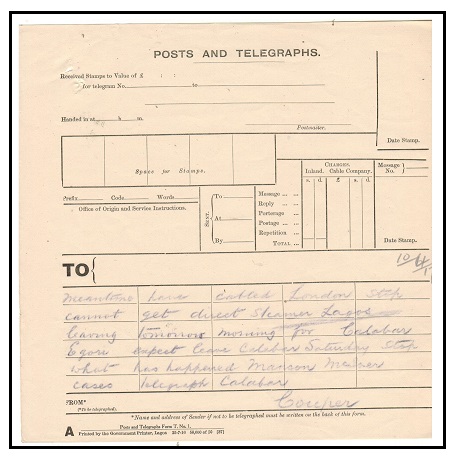 POSTS AND TELEGRAPHS.
Received Stamps to Value of £ : :
for telegram No. to
Handed in at h. m.
Postmaster.
Date Stamp.
Space for Stamps.
CHARGES.
Inland. Cable Company.
s. d. £ s. d.
Message No.
Prefix Code Words
Office of Origin and Service Instructions.
SENT.
To
At
By
Message ... ...
Reply ... ...
Porterage ...
Postage ... ...
Repetition ...
TOTAL ...
Date Stamp.
TO
Meantime have cabled London stop
cannot get direct steamer Lagos
leaving tomorrow morning for Calabar
expect leave Calabar Saturday stop
what has happened Manson
cases telegraph Calabar
FROM*
(*To be telegraphed).
Couper
*Name and address of Sender if not to be telegraphed must be written on the back of this form.
Posts and Telegraphs Form T. No. 1.
A Printed by the Government Printer, Lagos